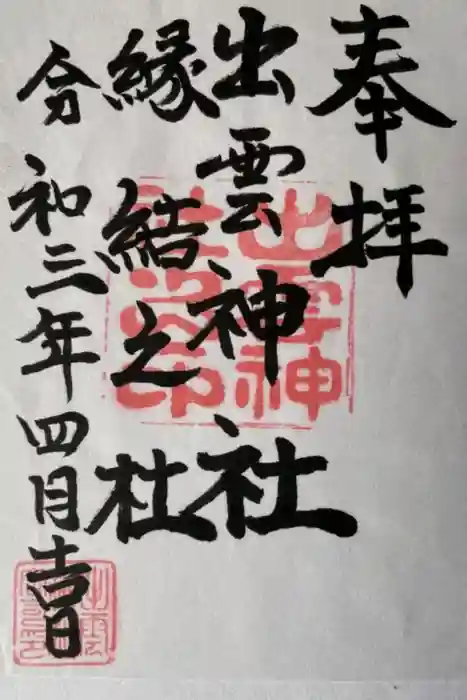 奉拝
出雲神社
縁結之杜
令和三年四月吉日
出雲神
社之印